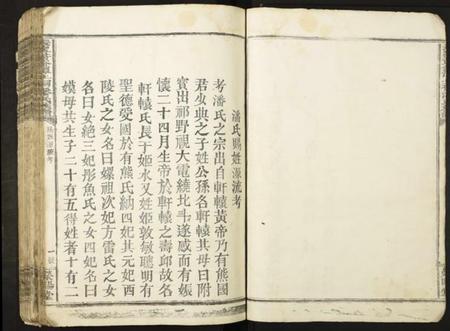 潘氏賜姓源流考
考潘氏之宗出自軒轅黃帝乃有熊國
君少典之子姓公孫名軒轅其母曰附
寳出祁野視大電繞北斗遂感而有娠
懷二十四月生帝於軒轅之壽邱故名
軒轅氏長于姬水又姓姬敦敏聰明有
聖德受國於有熊氏納四妃其元妃西
陵氏之女名曰嫘祖次妃方雷氏之女
名曰女絶三妃彤魚氏之女四妃名曰
嫫母共生子二十有五得姓者十有二
源流考